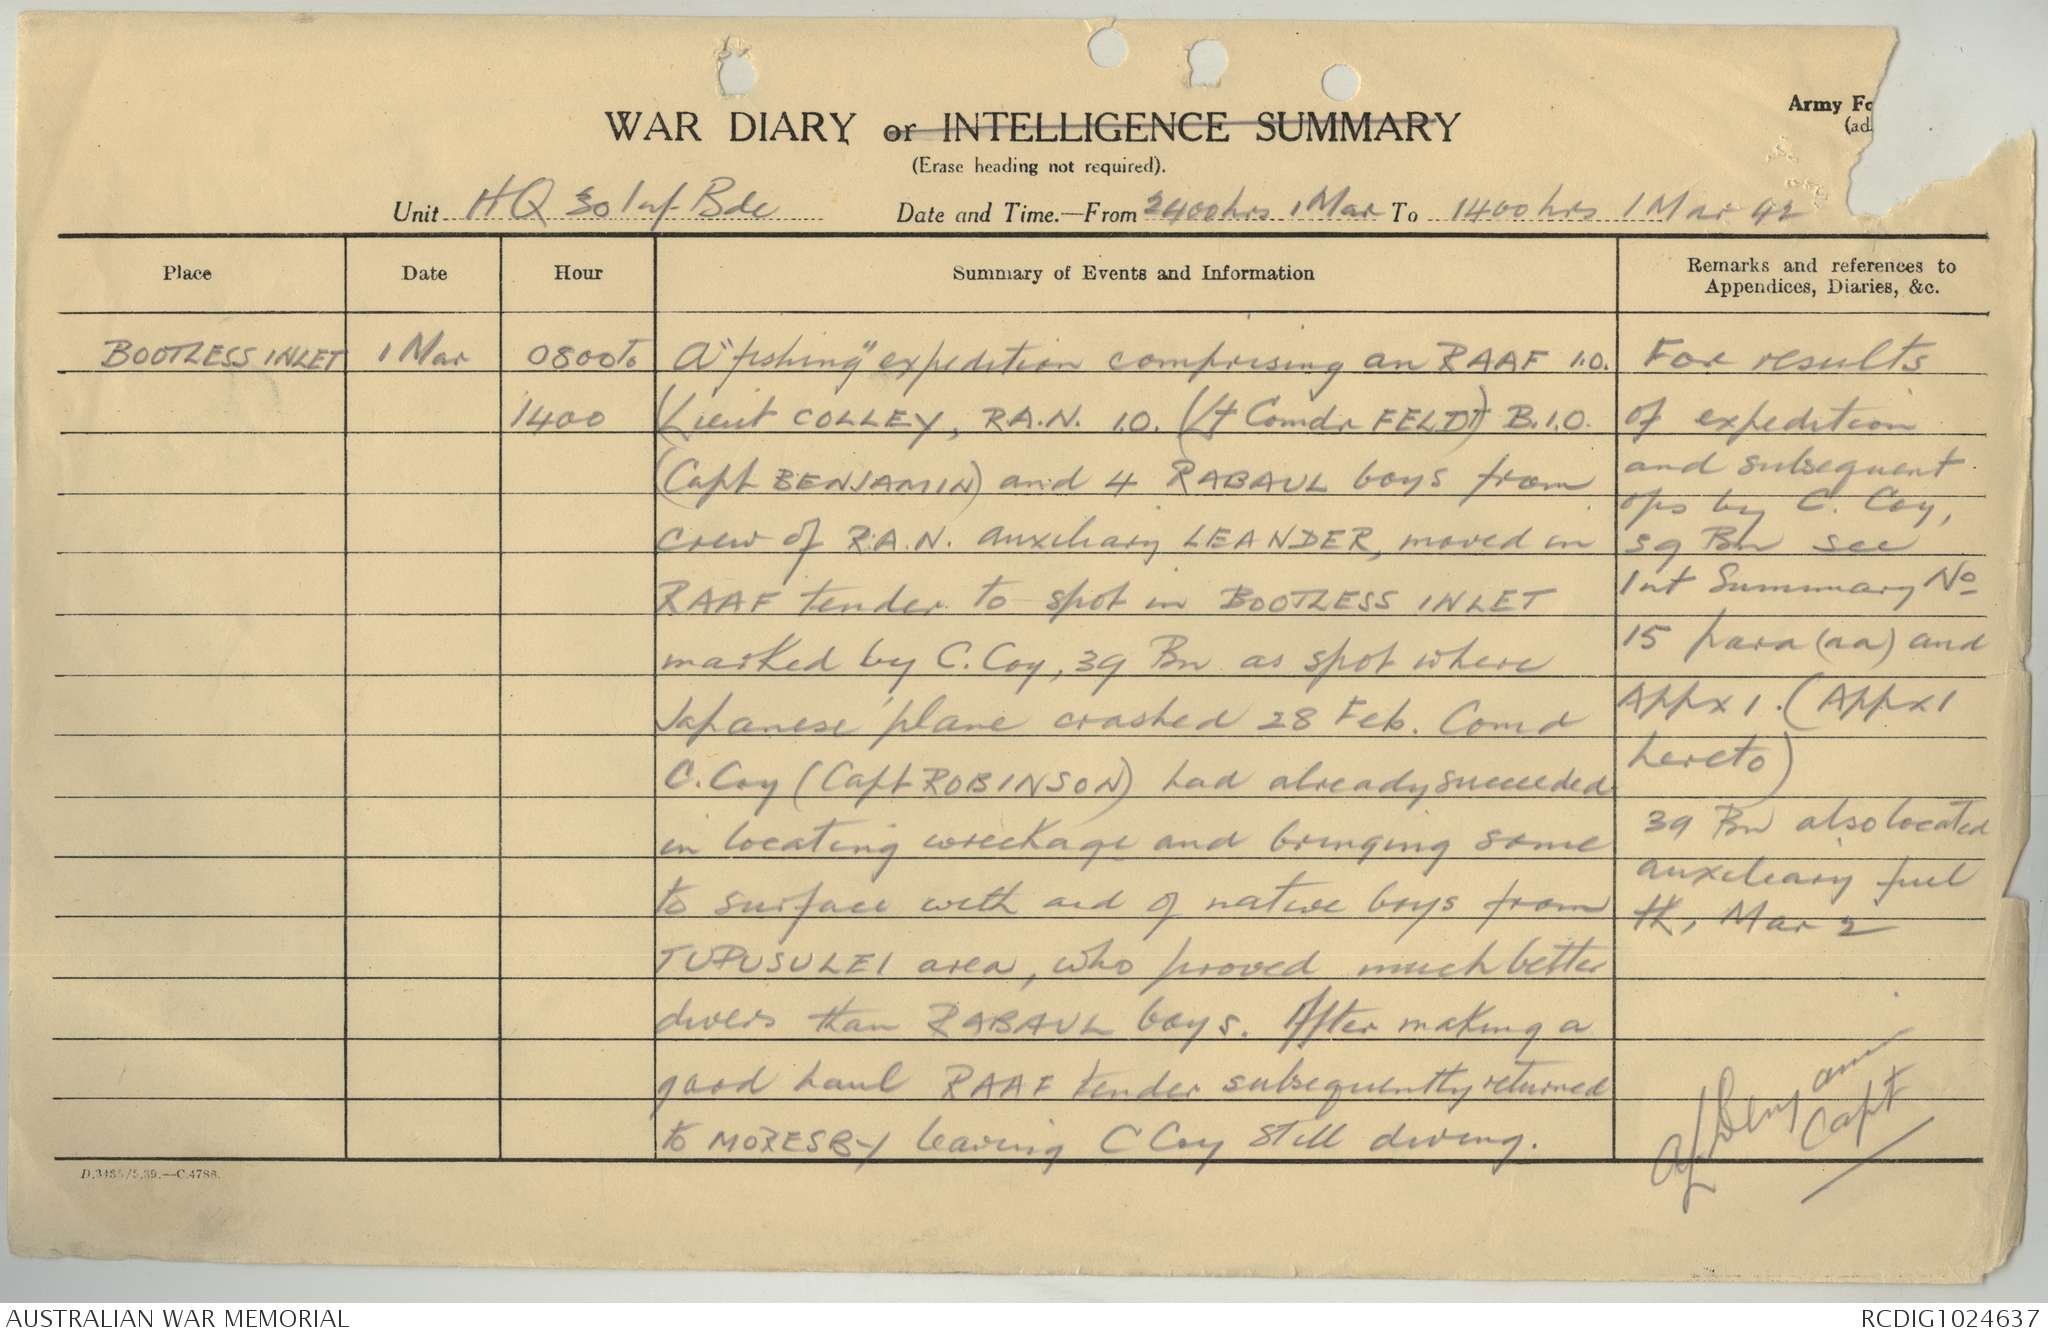 Army Fo
(ad
WAR DIARY or INTELLIGENCE SUMMARY
(Erase heading not required).
Unit HQ 30 Inf Bde Date and Time.—From 2400hrs 1 Mar To 1400hrs 1 Mar 42
Place Date Hour Summary of Events and Information Remarks and references to
Appendices, Diaries, &c.
BOOTLESS INLET 1 Mar 0800 To
1400
A "fishing" expedition comprising an RAAF I.O.
(Lieut COLLEY, R.A.N. I.O. (Lt Comdr FELDT) B.I.O.
(Capt BENJAMIN) and 4 RABAUL boys from
crew of R.A.N. auxiliary LEANDER, moved in
RAAF tender to spot in BOOTLESS INLET
marked by C. Coy, 39 Bn as spot where
Japanese plane crashed 28 Feb. Comd
C. Coy (Capt ROBINSON) had already succeeded
in locating wreckage and bringing some
to surface with aid of native boys from
TUPUSULEI area, who proved much better
divers than RABAUL boys. After making a
good haul RAAF tender subsequently returned
to MORESBY leaving C Coy still diving.
For results
of expedition
and subsequent
ops by C. Coy,
39 Bn see
Int Summary No
15 para (aa) and
Appx 1. (Appx 1
hereto)
39 Bn also located
auxiliary fuel
tk, Mar 2
Benjamin
Capt
D.3435/5.39.—C.4788.
AUSTRALIAN WAR MEMORIAL RCDIG1024637